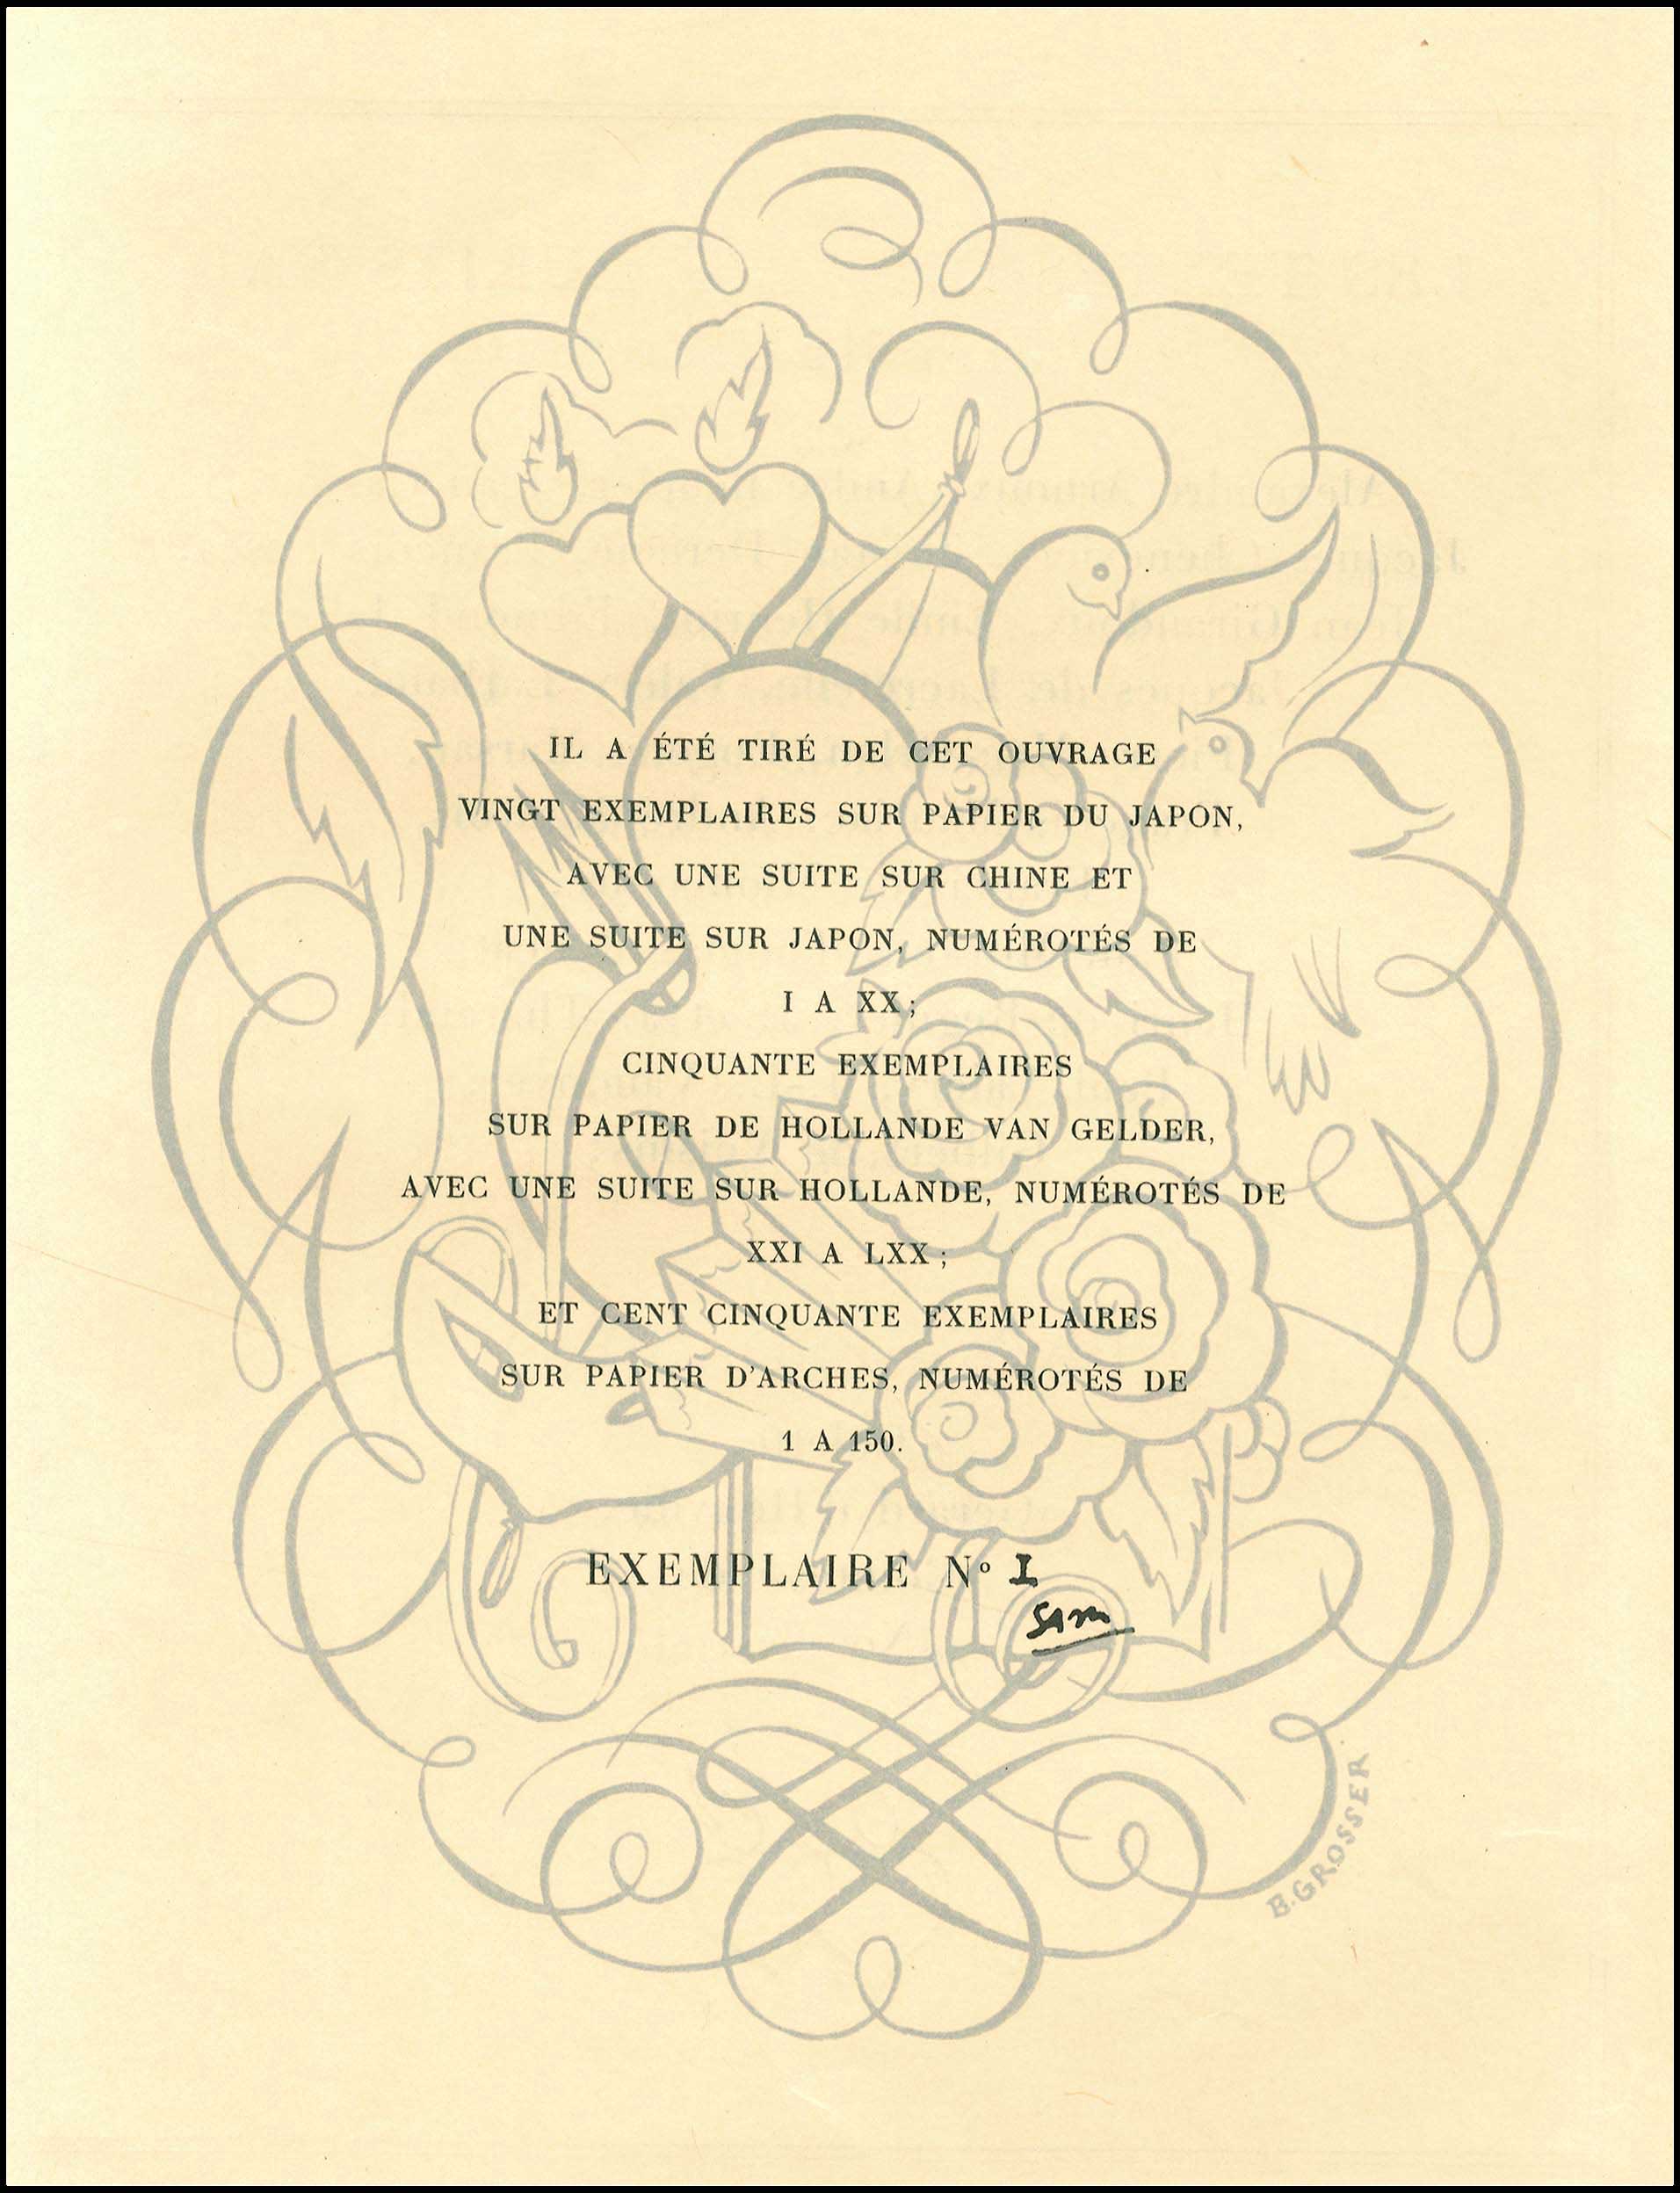 IL A ÉTÉ TIRÉ DE CET OUVRAGE
VINGT EXEMPLAIRES SUR PAPIER DU JAPON,
AVEC UNE SUITE SUR CHINE ET
UNE SUITE SUR JAPON, NUMÉROTÉS DE
I A XX ;
CINQUANTE EXEMPLAIRES
SUR PAPIER DE HOLLANDE VAN GELDER,
AVEC UNE SUITE SUR HOLLANDE, NUMÉROTÉS DE
XXI A LXX ;
ET CENT CINQUANTE EXEMPLAIRES
SUR PAPIER D'ARCHES, NUMÉROTÉS DE
1 A 150.
EXEMPLAIRE Nº I
B. GROSSER